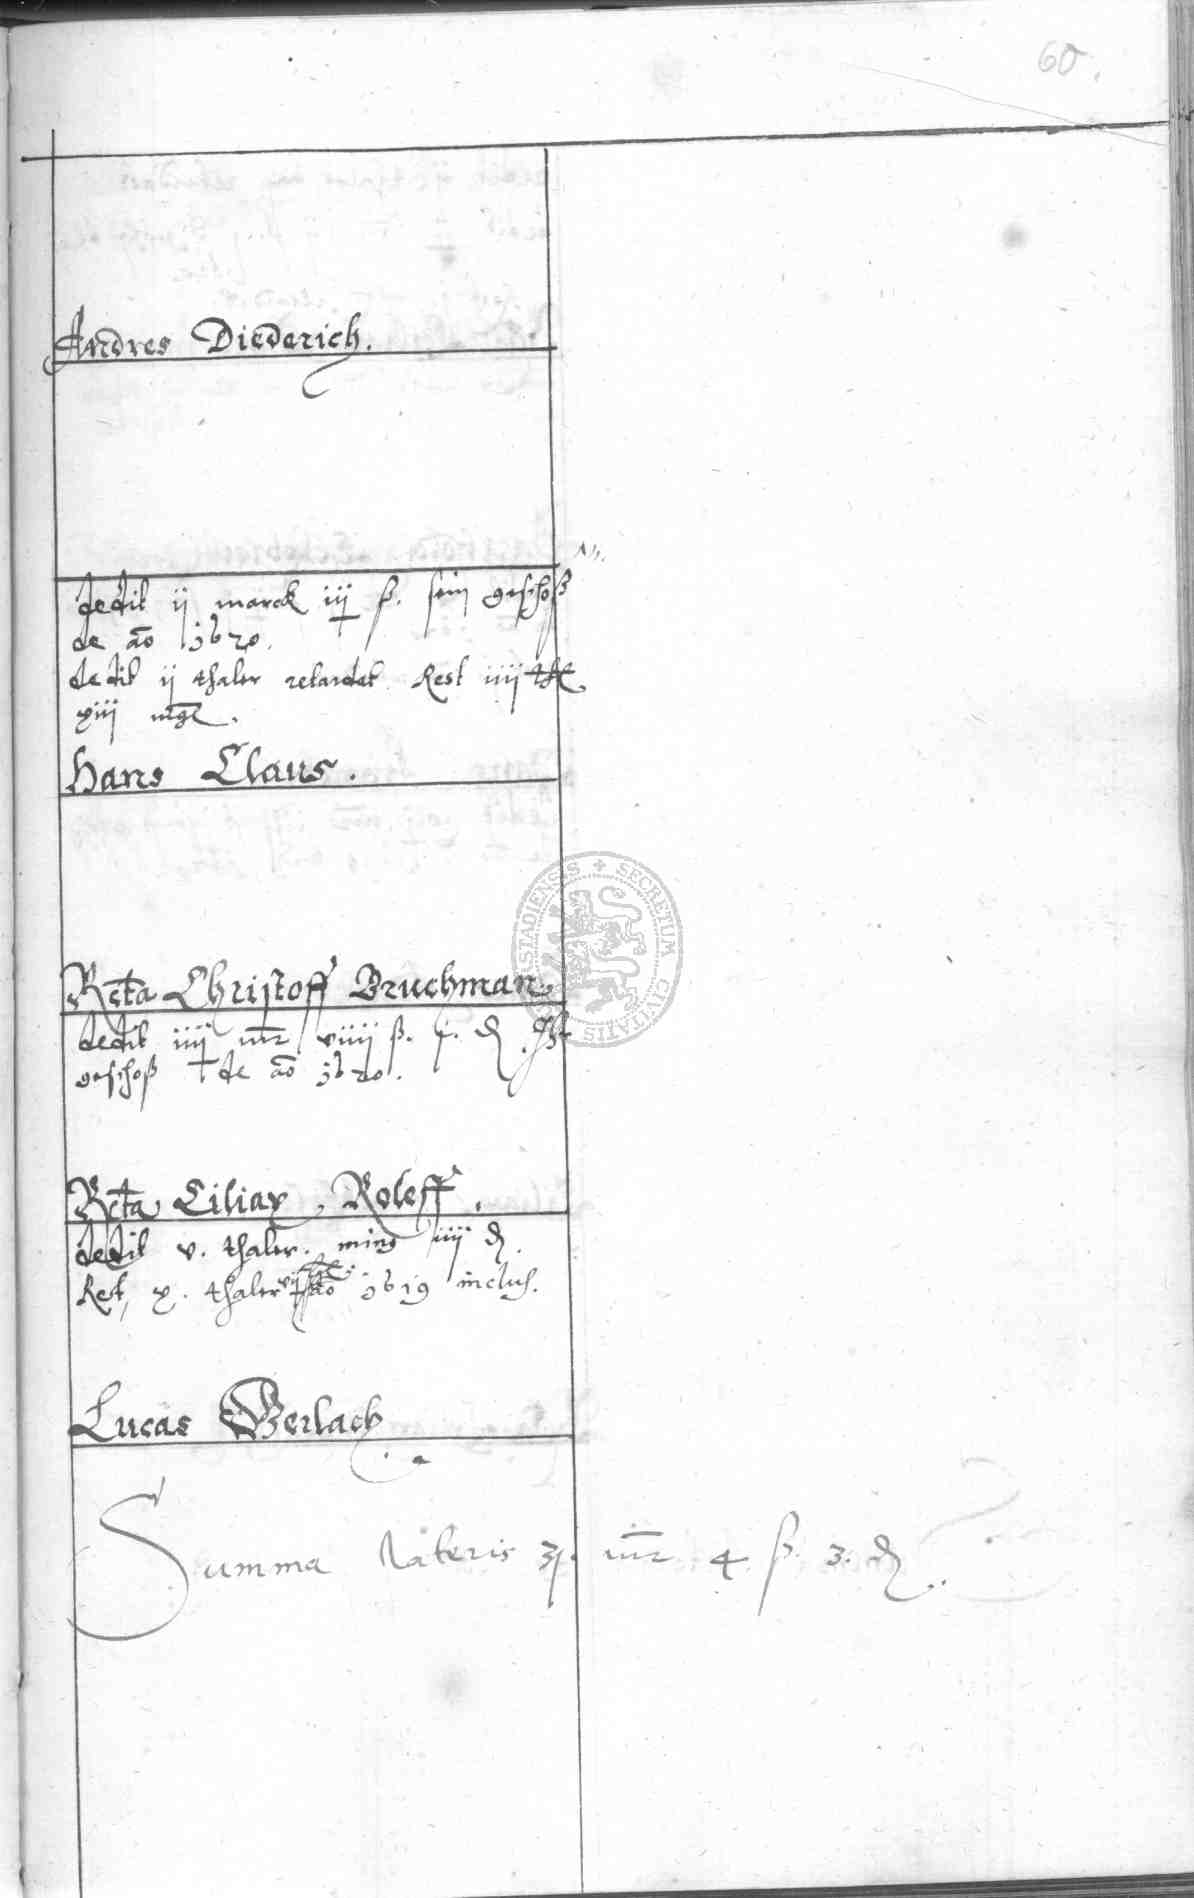 60.
Andres Diederich.
dedit ij marck iij ß. sein geschoß
de ao 1620.
dedit ij thaler retardat. Rest iiij thl
xiij mgl.
Hans Claus.
Rcta Christoff Bruchman.
dedit iiij mr viiij ß. j. d Ihr
geschoß de ao 1620.
Rcta Ciliax Roleff.
dedit v. thaler. min9 iiij d.
Rest, x. thaler ao 1619 inclus.
Lucas Gerlach
Summa Lateris 31. mr 4 ß. 3. d.
SECRETUM CIVITATIS STADIENSIS